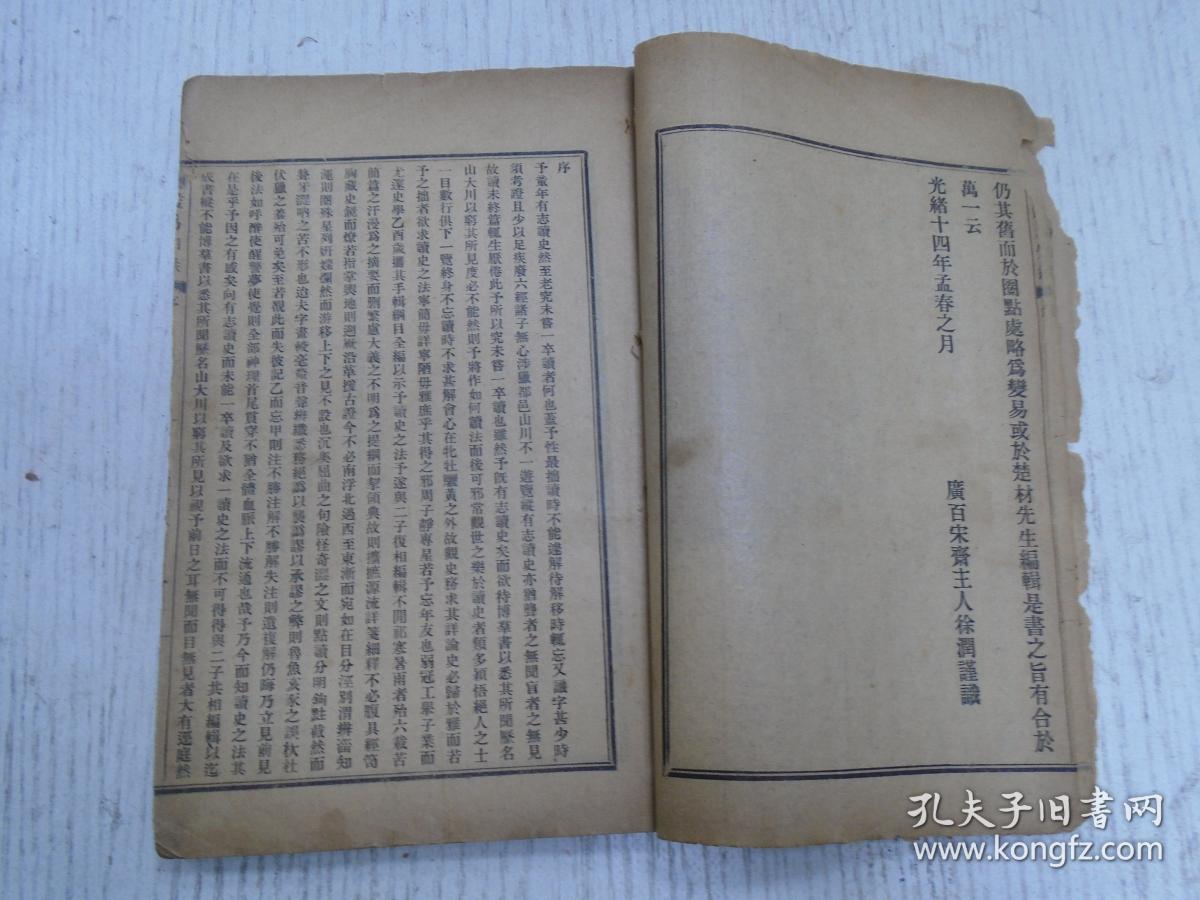 仍其舊而於圈點處略爲變易或於楚材先生編輯是書之旨有合於
萬一云
光緒十四年孟春之月
廣百宋齋主人徐潤謹識
序
予童年有志讀史然至老究未嘗一卒讀者何也蓋予性最拙讀時不能遽解待解移時輒忘又識字甚少時
須考證且少以足疾廢六經諸子無心涉獵都邑山川不一遊覽縱有志讀史亦猶聾者之無聞盲者之無見
故讀未終篇輒生厭倦此予所以究未嘗一卒讀也雖然予旣有志讀史矣而欲待博羣書以悉其所聞歷名
山大川以窮其所見度必不能然則予將作如何讀法而後可邪常觀世之樂於讀史者類多穎悟絕人之士
一目數行俱下一覽終身不忘讀時不求甚解會心在牝牡驪黃之外故觀史務求其詳論史必歸於雅而若
予之拙者欲求讀史之法寧簡毋詳寧陋毋雅庶乎其得之邪周子靜專星若予忘年友也弱冠工舉子業而
尤邃史學乙酉歲攜其手輯綱目全編以示予讀史之法予遂與二子復相編輯不間祁寒暑雨者殆六載苦
簡篇之汗漫爲之摘要而剟繁慮大義之不明爲之提綱而挈領典故則擴摭源流詳箋細釋不必腹具經笥
胸藏史鏡而燎若指掌輿地則遡厥沿革援古證今不必南浮北過西至東漸而宛如在目分涇別渭辨淄知
澠則圈殊星列妍媸爛然而游移上下之見不設也沉奧屈曲之句險怪奇澀之文則點讀分明鉤㸃截然而
聱牙澀吶之苦不形也迨夫字畫較毫釐音聲辨纖悉務絕譌以襲譌謬以承謬之弊則魯魚亥豕之誤杕杜
伏獵之羞始可免矣至若覩此而失彼記乙而忘甲則注不勝注解不勝解失注則遺複解仍晦乃立見前見
後法如呼醉使醒警夢使覺則全部神理首尾貫穿不猶全體血脈上下流通也哉予乃今而知讀史之法其
在是乎予因之有感矣向有志讀史而未能一卒讀及欲求一讀史之法而不可得得與二子共相編輯以迄
成書縱不能博羣書以悉其所聞歷名山大川以窮其所見以視予前日之耳無聞而目無見者大有逕庭然
孔夫子旧书网
www.kongfz.com